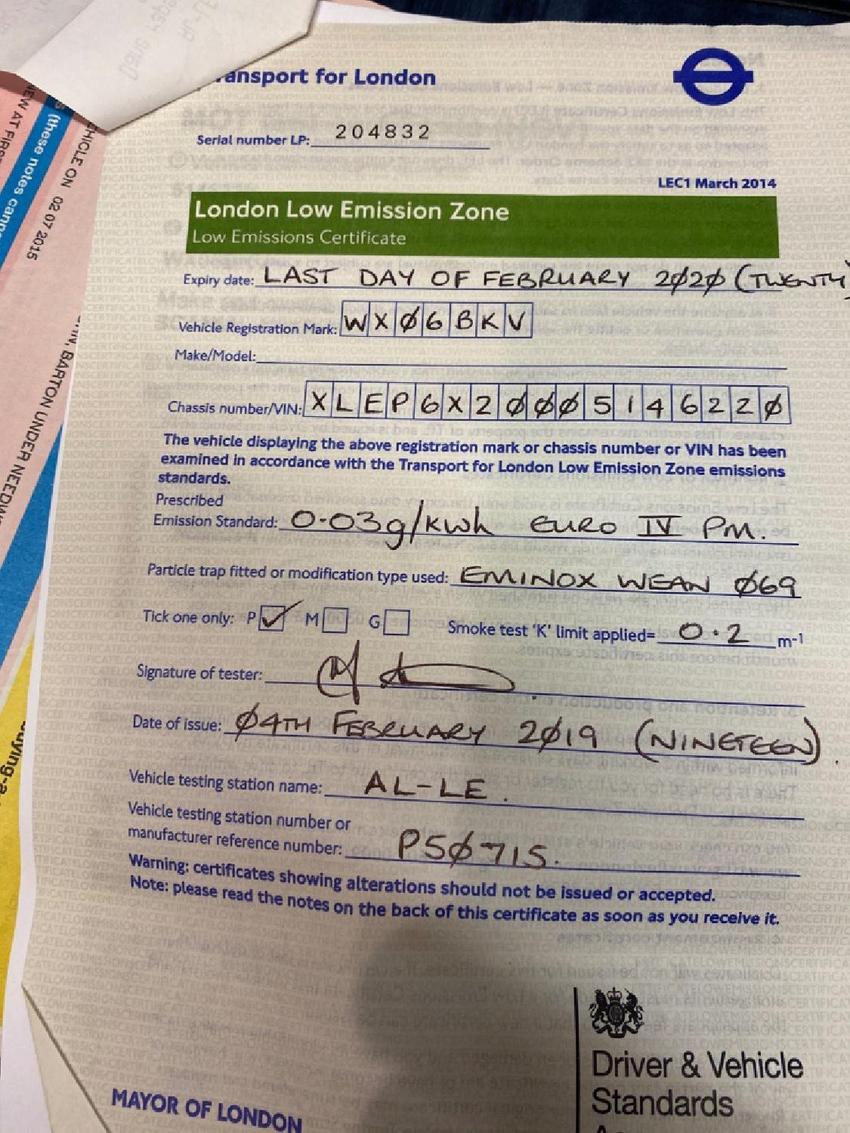 ansport for London
Serial number LP: 204832
LEC1 March 2014
London Low Emission Zone
Low Emissions Certificate
Expiry date: LAST DAY OF FEBRUARY 2020 (TWENTY)
Vehicle Registration Mark: WX06BKV
Make/Model:
Chassis number/VIN: XLEP6X20005146220
The vehicle displaying the above registration mark or chassis number or VIN has been
examined in accordance with the Transport for London Low Emission Zone emissions
standards.
Prescribed
Emission Standard: 0.03g/kwh EURO IV PM.
Particle trap fitted or modification type used: EMINOX WEAN 069
Tick one only: P ✓ M G Smoke test 'K' limit applied= 0.2 m-1
Signature of tester:
Date of issue: 04TH FEBRUARY 2019 (NINETEEN).
Vehicle testing station name: AL-LE.
Vehicle testing station number or
manufacturer reference number: P50715.
Warning: certificates showing alterations should not be issued or accepted.
Note: please read the notes on the back of this certificate as soon as you receive it.
MAYOR OF LONDON
Driver & Vehicle
Standards
HICLE ON 02 07 2015
(these notes cann
EW AT FIRS
, BARTON UNDER NEEDW
uying-a